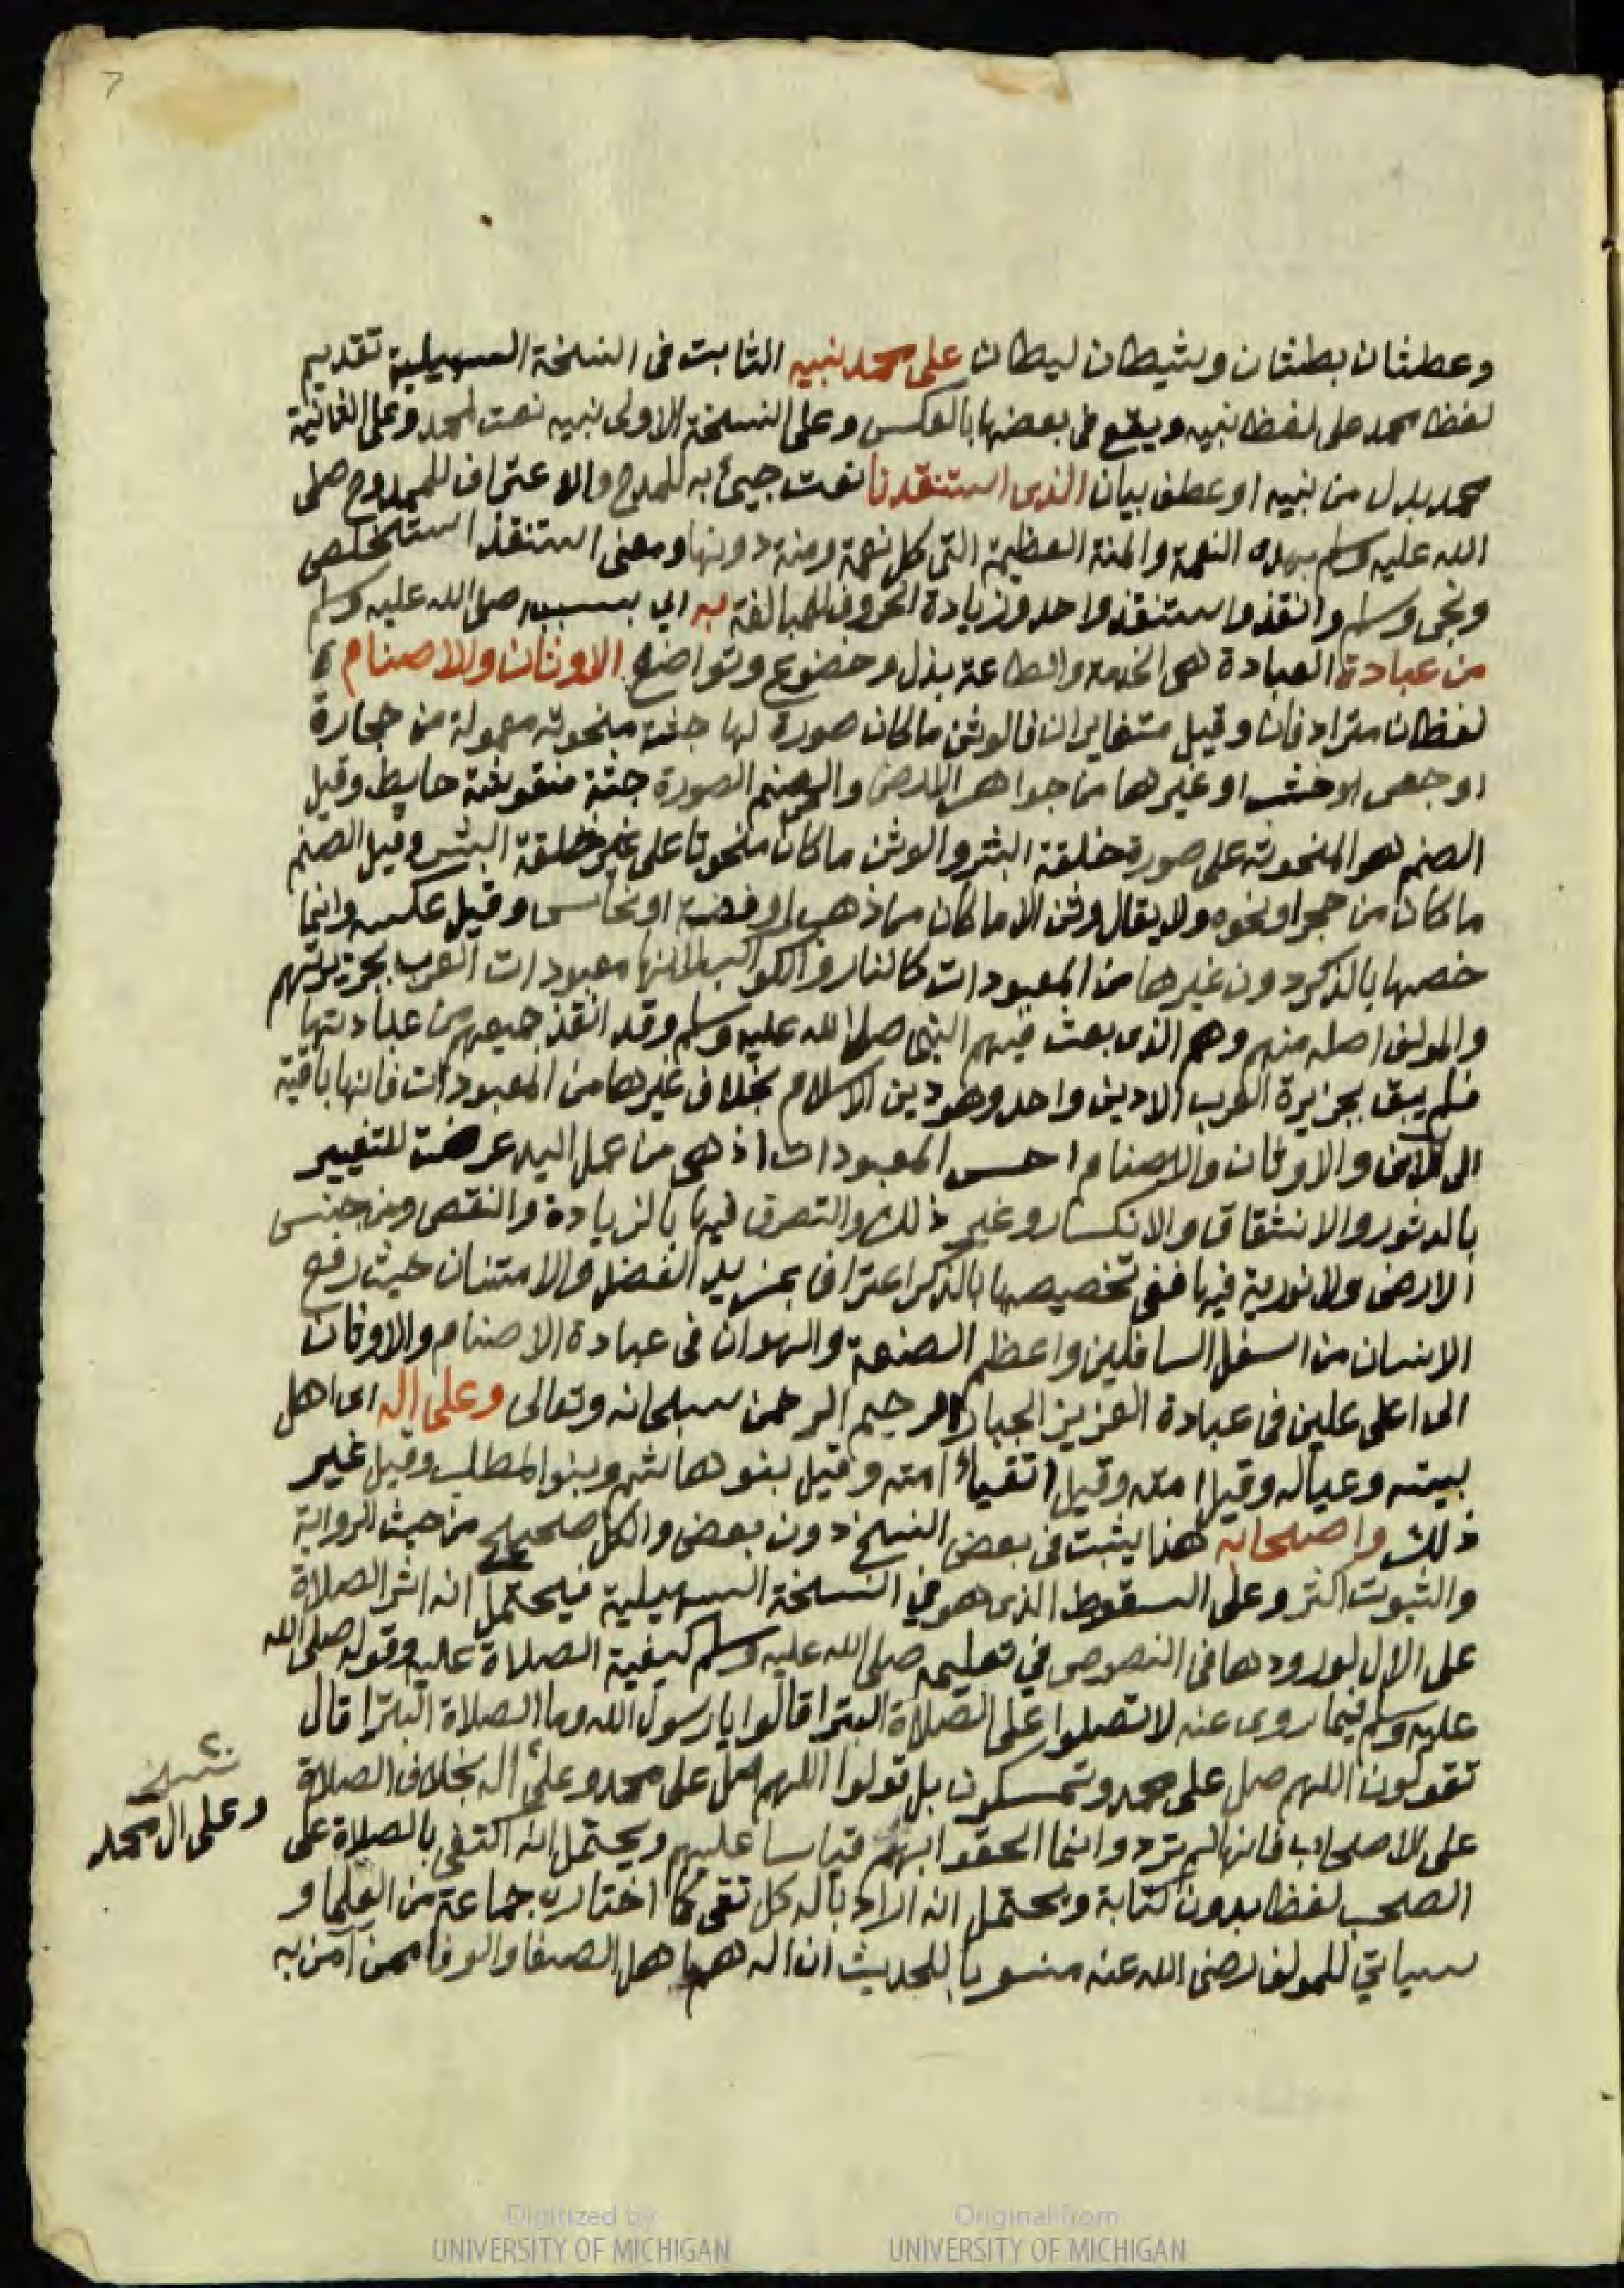 7
وعطشان بطشان وشيطان ليطان على محمد نبيه الثابت في النسخة السهيلية تقديم
لفظ محمد على لفظ نبيه ويقع في بعضها بالعكس وعلى النسخة الاولى نبيه نعت لمحمد وعلى الثانية
محمد بدل من نبيه او عطف بيان الذى استنقذنا نعت جيئ به للمدح والاعتراف للممدوح صلى
الله عليه وسلم بهذه النعمة والمنة العظيمة التى كل نعمة ومنة دونها ومعنى استنقذ استخلص
ونجى وسلم وانقذ واستنقذ واحد وزيادة الحروف للمبالغة به اي بسببه صلى الله عليه وسلم
من عبادة العبادة هى الخدمة والطاعة بذل وخضوع وتواضع الاوثان والاصنام
لفظان مترادفان وقيل متغايران فالوثن ما كان صورة لها جثة منحوتة معمولة من حجارة
او جص او خشب او غيرها من جواهر الارض والصنم الصورة جثة منقوشة حايط وقيل
الصنم هو المنحوتة على صورة خلقة البشر والوثن ما كان منحوتا على غير خلقة البشر وقيل الصنم
ما كان من حجر او نحوه ولا يقال وثن الا ما كان من ذهب او فضة او نحاس وقيل عكسه وانما
خصها بالذكر دون غيرها من المعبودات كالنار والكواكب لانها معبودات العرب بجزيرتهم
والمولف اصله منهم وهم الذى بعث فيهم النبى صلى الله عليه وسلم وقد انقذ جميعهم من عبادتها
فلم يبق بجزيرة العرب الا دين واحد وهو دين الاسلام بخلاف غيرها من المعبودات فانها باقية
الى الان والاوثان والاصنام احس المعبودات اذ هى من عمل اليد عرضت للتغيير
بالدثور والانشقاق والانكسار وغير ذلك والتصرف فيها بالزيادة والنقص ومن جنس
الارض ولا نورية فيها ففى تخصيصها بالذكر اعتراف بمزيد الفضل والامتنان حيث رفع
الانسان من اسفل السافلين واعظم الصنعة والهوان فى عبادة الاصنام والاوثان
الى اعلى علين فى عبادة العزيز الجبار الرحيم الرحمن سبحانه وتعالى وعلى اله اى اهل
بيته وعياله وقيل امته وقيل اتقياء امته وقيل بنو هاشم وبنو المطلب وقيل غير
ذلك واصحابه هذا يثبت فى بعض النسخ دون بعض والكل صحيح من حيث الرواية
والثبوت اكثر وعلى السقوط الذى هو في النسخة السهيلية فيحتمل انه اثر الصلاة
على الال لورودها فى النصوص في تعليمه صلى الله عليه وسلم كيفية الصلاة عليه وقوله صلى الله
عليه وسلم فيما روى عنه لا تصلوا على الصلاة البترا قالوا يا رسول الله وما الصلاة البترا قال
تقولون اللهم صل على محمد وتمسكون بل قولوا اللهم صل على محمد وعلى اله بخلاف الصلاة
على الاصحاب فانها لم ترد وانما الحقوا بهم قياسا عليهم ويحتمل انه اكتفى بالصلاة على
الصحب لفظا بدون كتابة ويحتمل انه اراد باله كل تقى كما اختاره جماعة من العلما و
سياتي للمولف رضى الله عنه منسوبا للحديث ان اله هم اهل الصفا والوفا ممن آمن به
نسخ
وعلى ال محمد
Digitized by
UNIVERSITY OF MICHIGAN
Original from
UNIVERSITY OF MICHIGAN